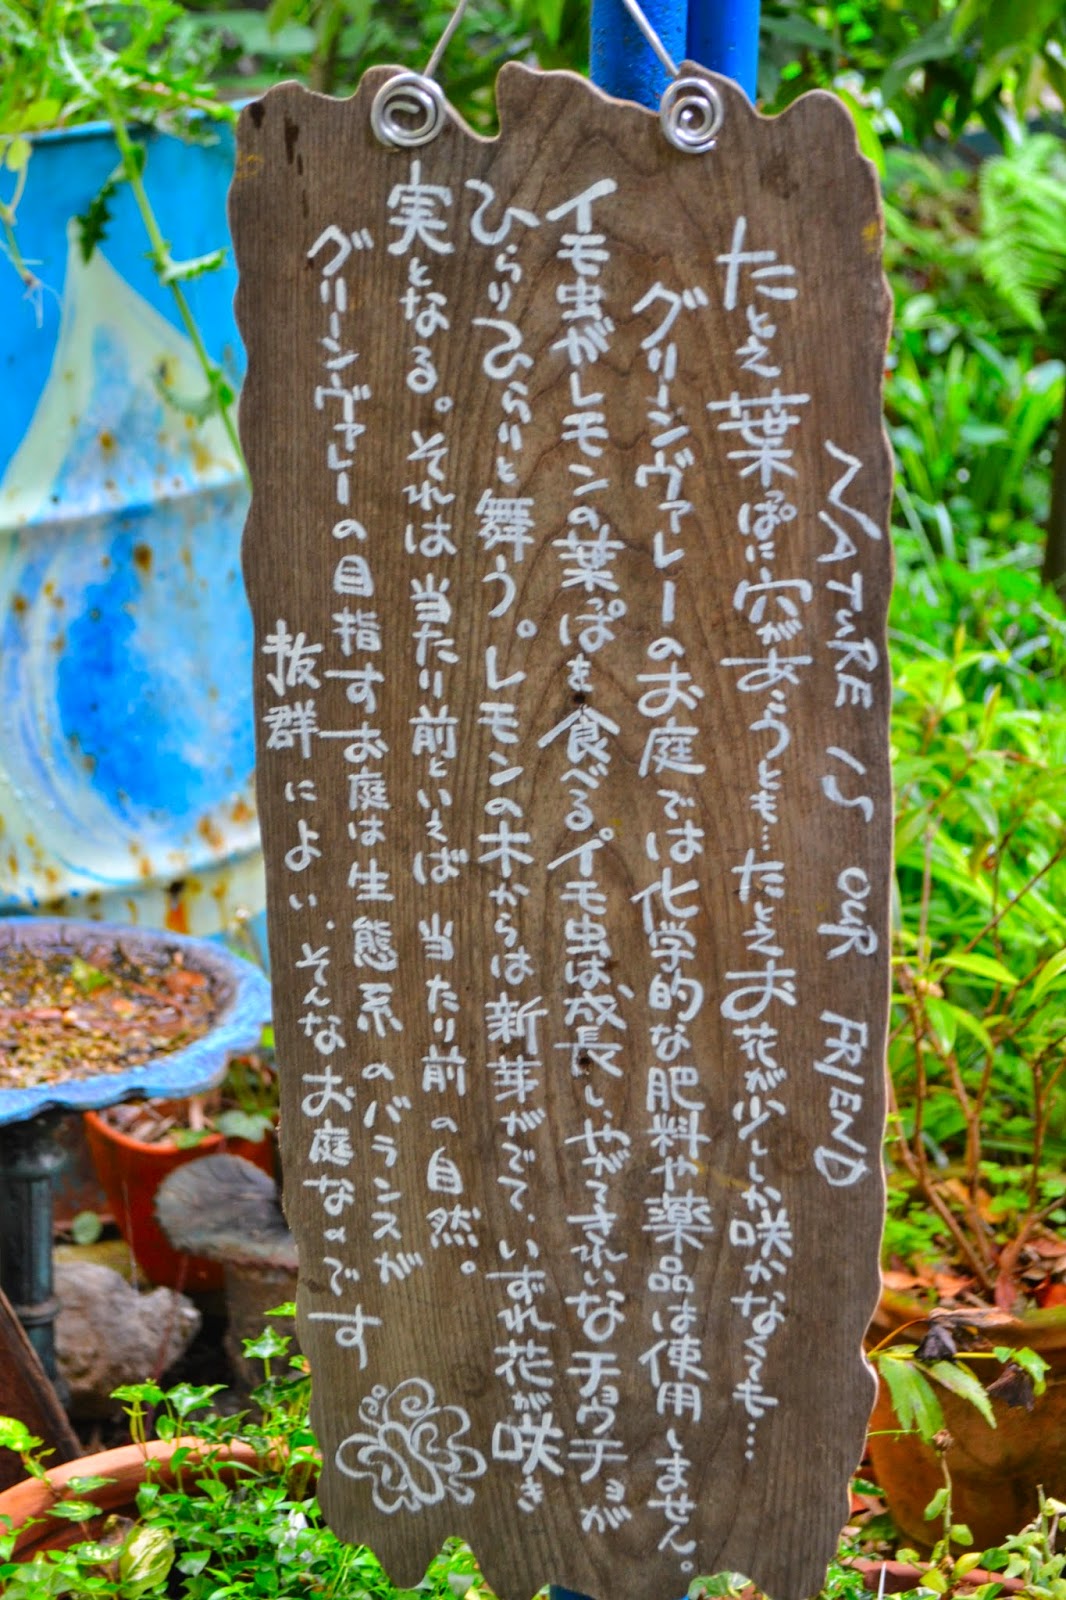 NATURE IS OUR FRIEND
たとえ葉っぱに穴があこうとも…たとえお花が少ししか咲かなくても…
グリーンヴァレーのお庭では化学的な肥料や薬品は使用しません。
イモ虫がレモンの葉っぱを食べるイモ虫は、成長し、やがてきれいなチョウチョが
ひらりひらりと舞う。レモンの木からは新芽がでて、いずれ花が咲き
実となる。それは当たり前といえば当たり前の自然。
グリーンヴァレーの目指すお庭は生態系のバランスが
抜群によい、そんなお庭なのです